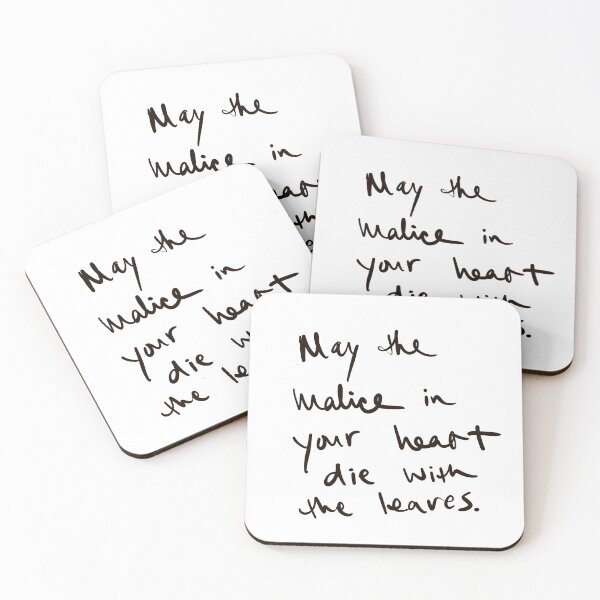 May the
malice in
May the
malice in
your heart
die with
May the
malice in
your heart
die
the
May the
malice in
your heart
die with
the leaves.